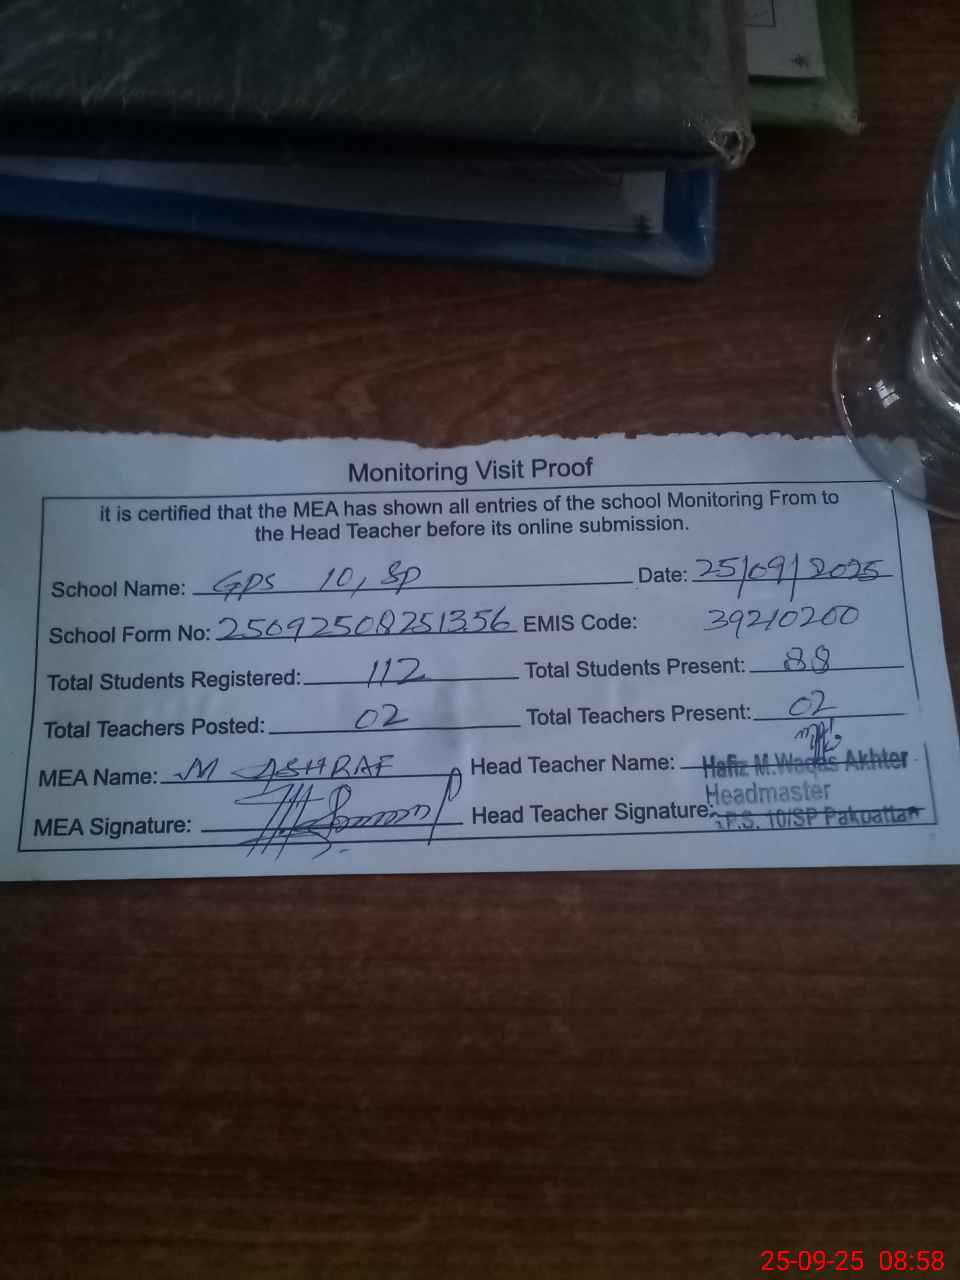 Monitoring Visit Proof
it is certified that the MEA has shown all entries of the school Monitoring From to
the Head Teacher before its online submission.
School Name: GPS 10, SP Date: 25/09/2025
School Form No: 25092508251356 EMIS Code: 39210200
Total Students Registered: 112 Total Students Present: 88
Total Teachers Posted: 02 Total Teachers Present: 02
MEA Name: M ASHRAF Head Teacher Name: Hafiz M.Waqas Akhter
Headmaster
MEA Signature: Head Teacher Signature: .P.S. 10/SP Pakpattan
25-09-25 08:58